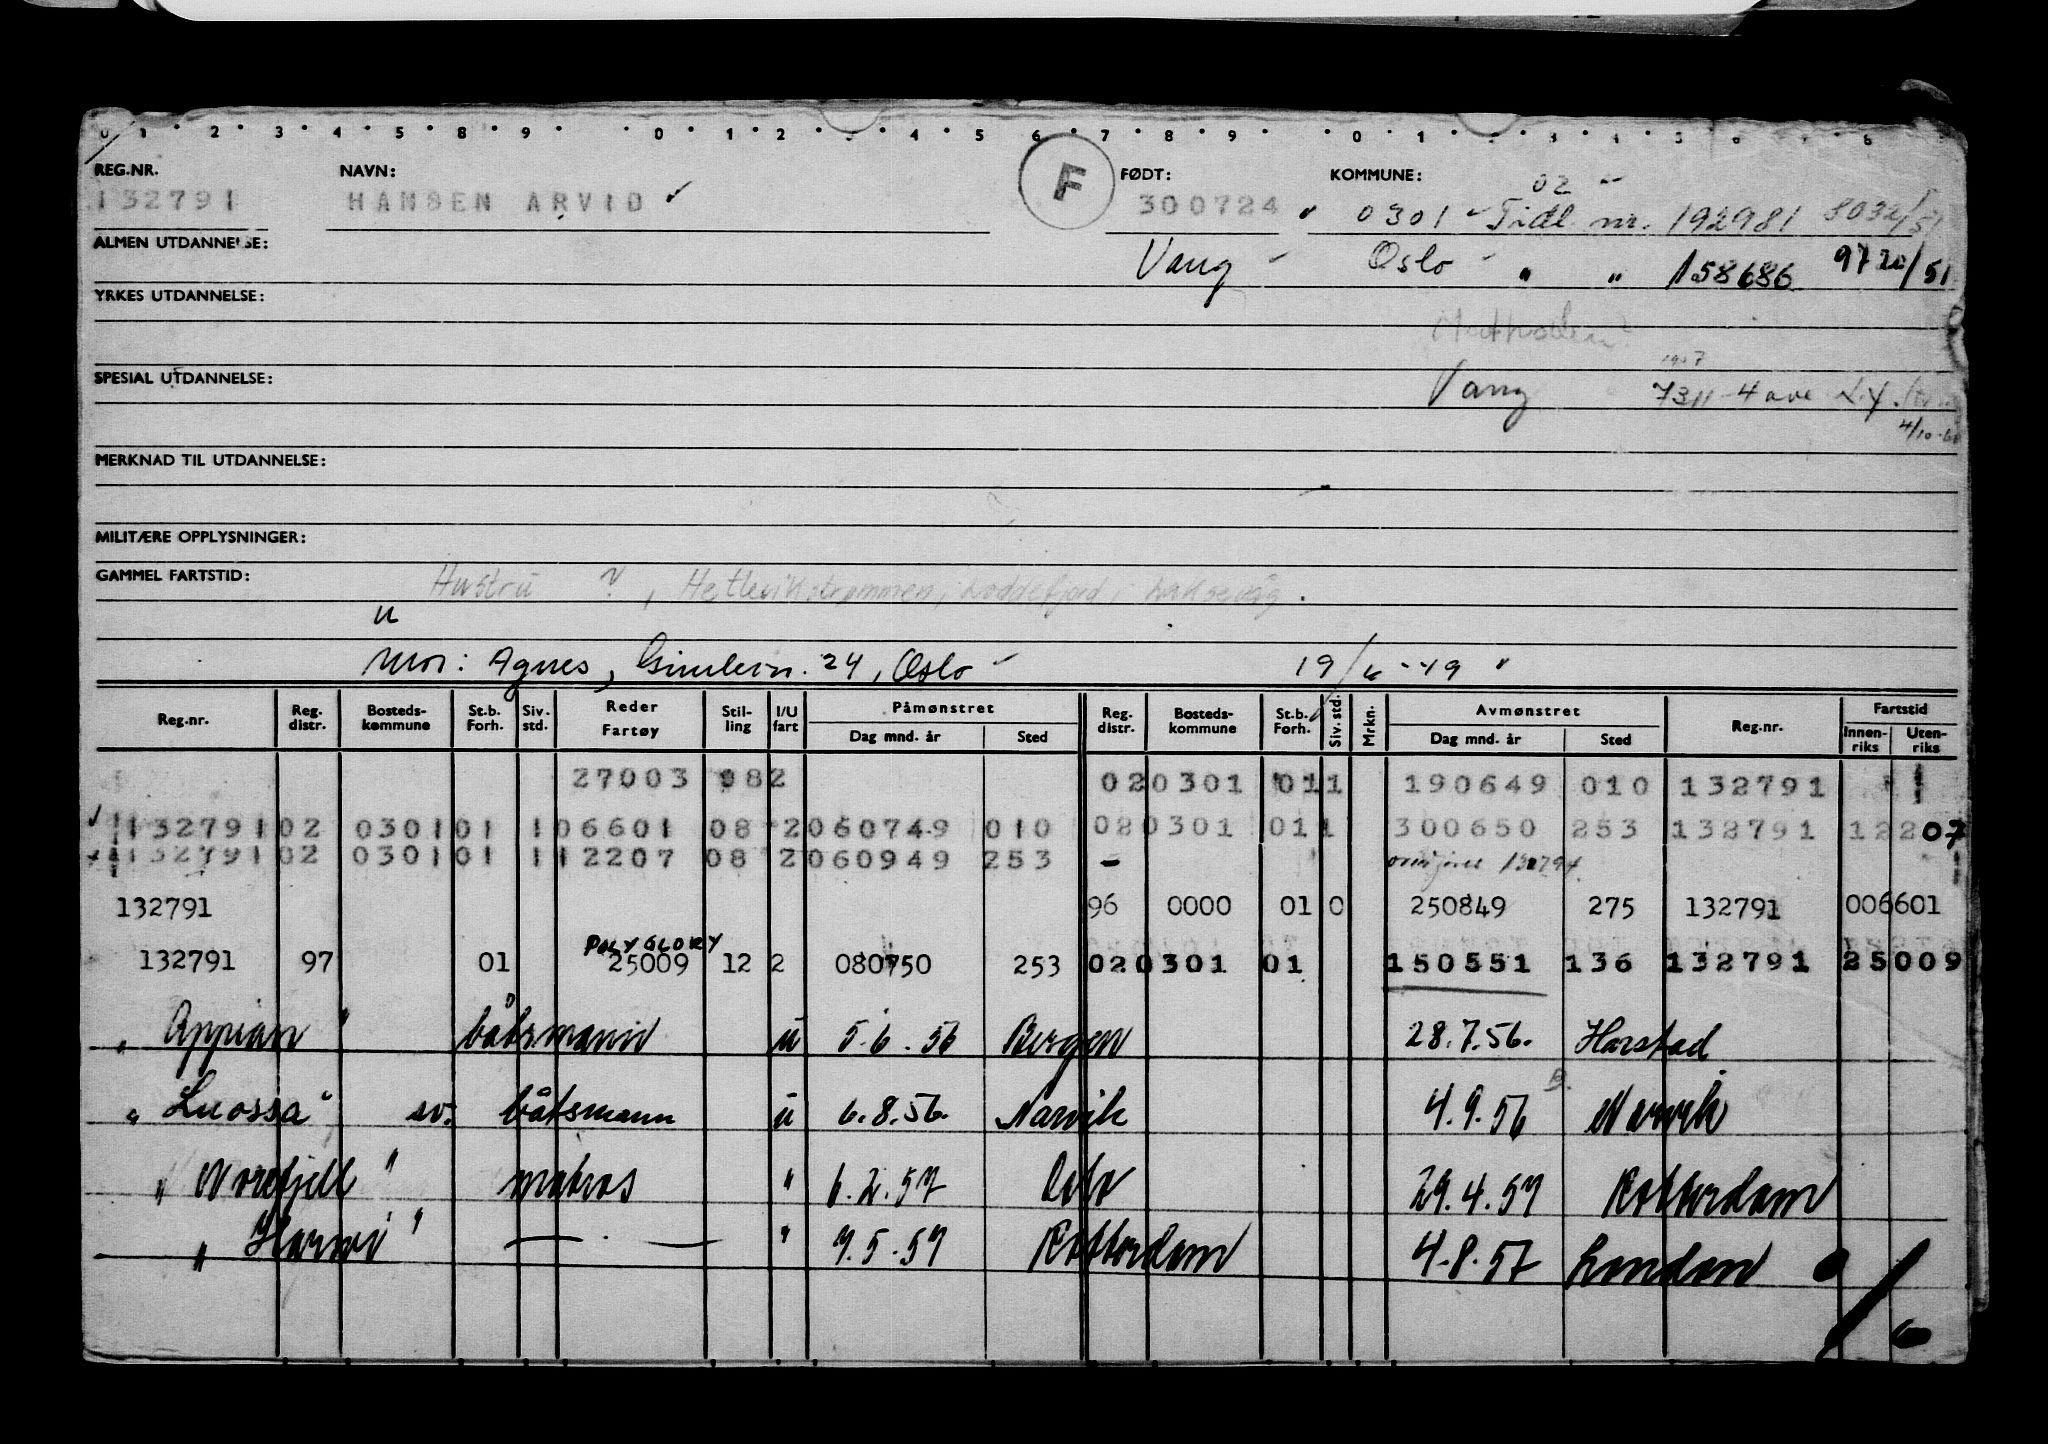 0 1 2 3 4 5 8 9 0 1 2 4 5 6 7 8 9 0 1 3 4 5
REG.NR. NAVN: F FØDT: KOMMUNE: 02
132791 HANSEN ARVID 300724 0301 Tidl. nr. 192981 8032/51
ALMEN UTDANNELSE: Vang Oslo " " 158686 9720/51
YRKES UTDANNELSE:
SPESIAL UTDANNELSE: Vang 7311-4 ave
MERKNAD TIL UTDANNELSE:
MILITÆRE OPPLYSNINGER:
GAMMEL FARTSTID: Hustru ?, Hetlevikstrømmen, Loddefjord, Laksevåg.
u
Mor: Agnes, Gimlevn. 24, Oslo 19/6-49
Reg.nr. Reg. distr. Bosteds-kommune St.b. Forh. Siv. std. Reder Fartøy Stil-ling I/U fart Påmønstret Dag mnd. år Sted Reg. distr. Bosteds-kommune St.b. Forh. Siv. std. Mrkn. Avmønstret Dag mnd. år Sted Reg.nr. Fartstid Innen-riks Uten-riks
27003 082 020301 011 190649 010 132791
132791 02 0301 01 1 06601 08 2 060749 010 020301 011 300650 253 132791 12207
132791 02 0301 01 1 12207 08 2 060949 253 -
132791 96 0000 01 0 250849 275 132791 006601
POLYGLORY
132791 97 01 25009 12 2 080750 253 020301 01 150551 136 132791 25009
" Appian " båtsmann u 5.6.56 Bergen 28.7.56. Harstad
" Luossa " sv. båtsmann u 6.8.56. Narvik 4.9.56 Narvik
" Norefjell " matros " 6.2.57 Oslo 29.4.57 Rotterdam
" Harwi " — . — " 7.5.57 Rotterdam 4.8.57 London